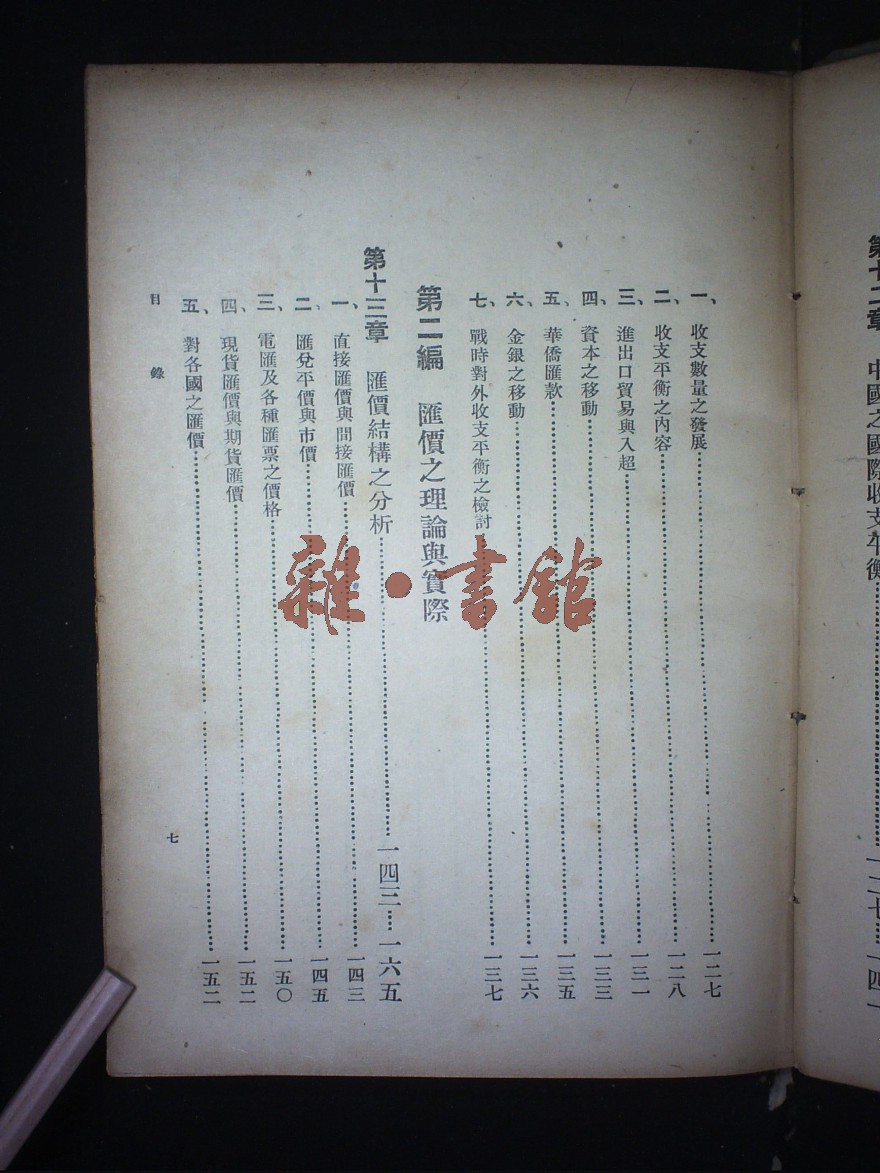 第十二章 中國之國際收支平衡……一二七…一四一
一、收支數量之發展……一二七
二、收支平衡之內容……一二八
三、進出口貿易與入超……一三一
四、資本之移動……一三三
五、華僑匯款……一三五
六、金銀之移動……一三六
七、戰時對外收支平衡之檢討……一三七
第二編 匯價之理論與實際
第十三章 匯價結構之分析……一四三…一六五
一、直接匯價與間接匯價……一四三
二、匯兌平價與市價……一四五
三、電匯及各種匯票之價格……一五〇
四、現貨匯價與期貨匯價……一五二
五、對各國之匯價……一五二
目錄
七
雜·書館